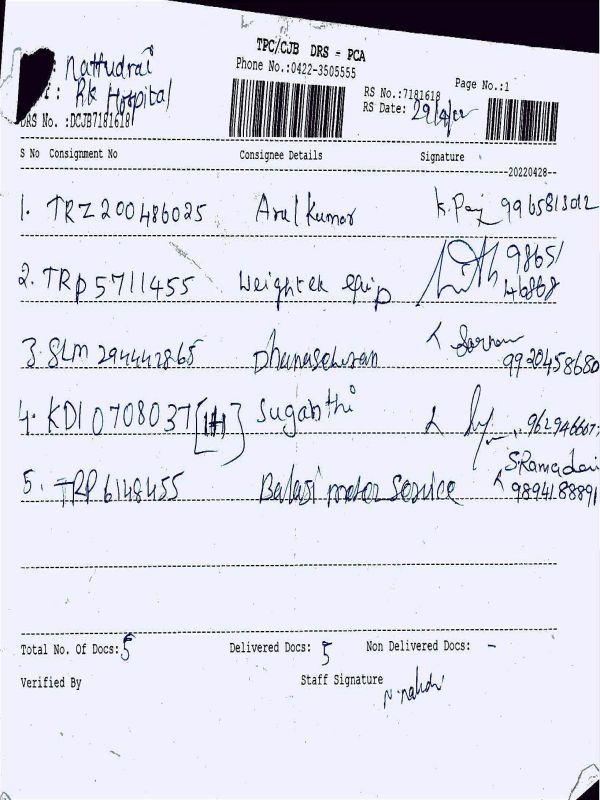 TPC/CJB DRS - PCA
Phone No.:0422-3505555
Nattudrai
: RK Hospital
RS No.:7181618 Page No.:1
RS Date: 29/4/22
DRS No. :DCJB7181618
S No Consignment No Consignee Details Signature
20220428
1. TRZ200486025 Arul Kumar 9965813012
2. TRP5711455 Weightek equip 98651
46868
3. SLM 294442865 Dhanasekaran
9920458680
4. KDI0708037 [1+1] Suganthi
5. TRP6148455 Balaji motor Service
9894188891
Total No. Of Docs: 5 Delivered Docs: 5 Non Delivered Docs: -
Verified By Staff Signature